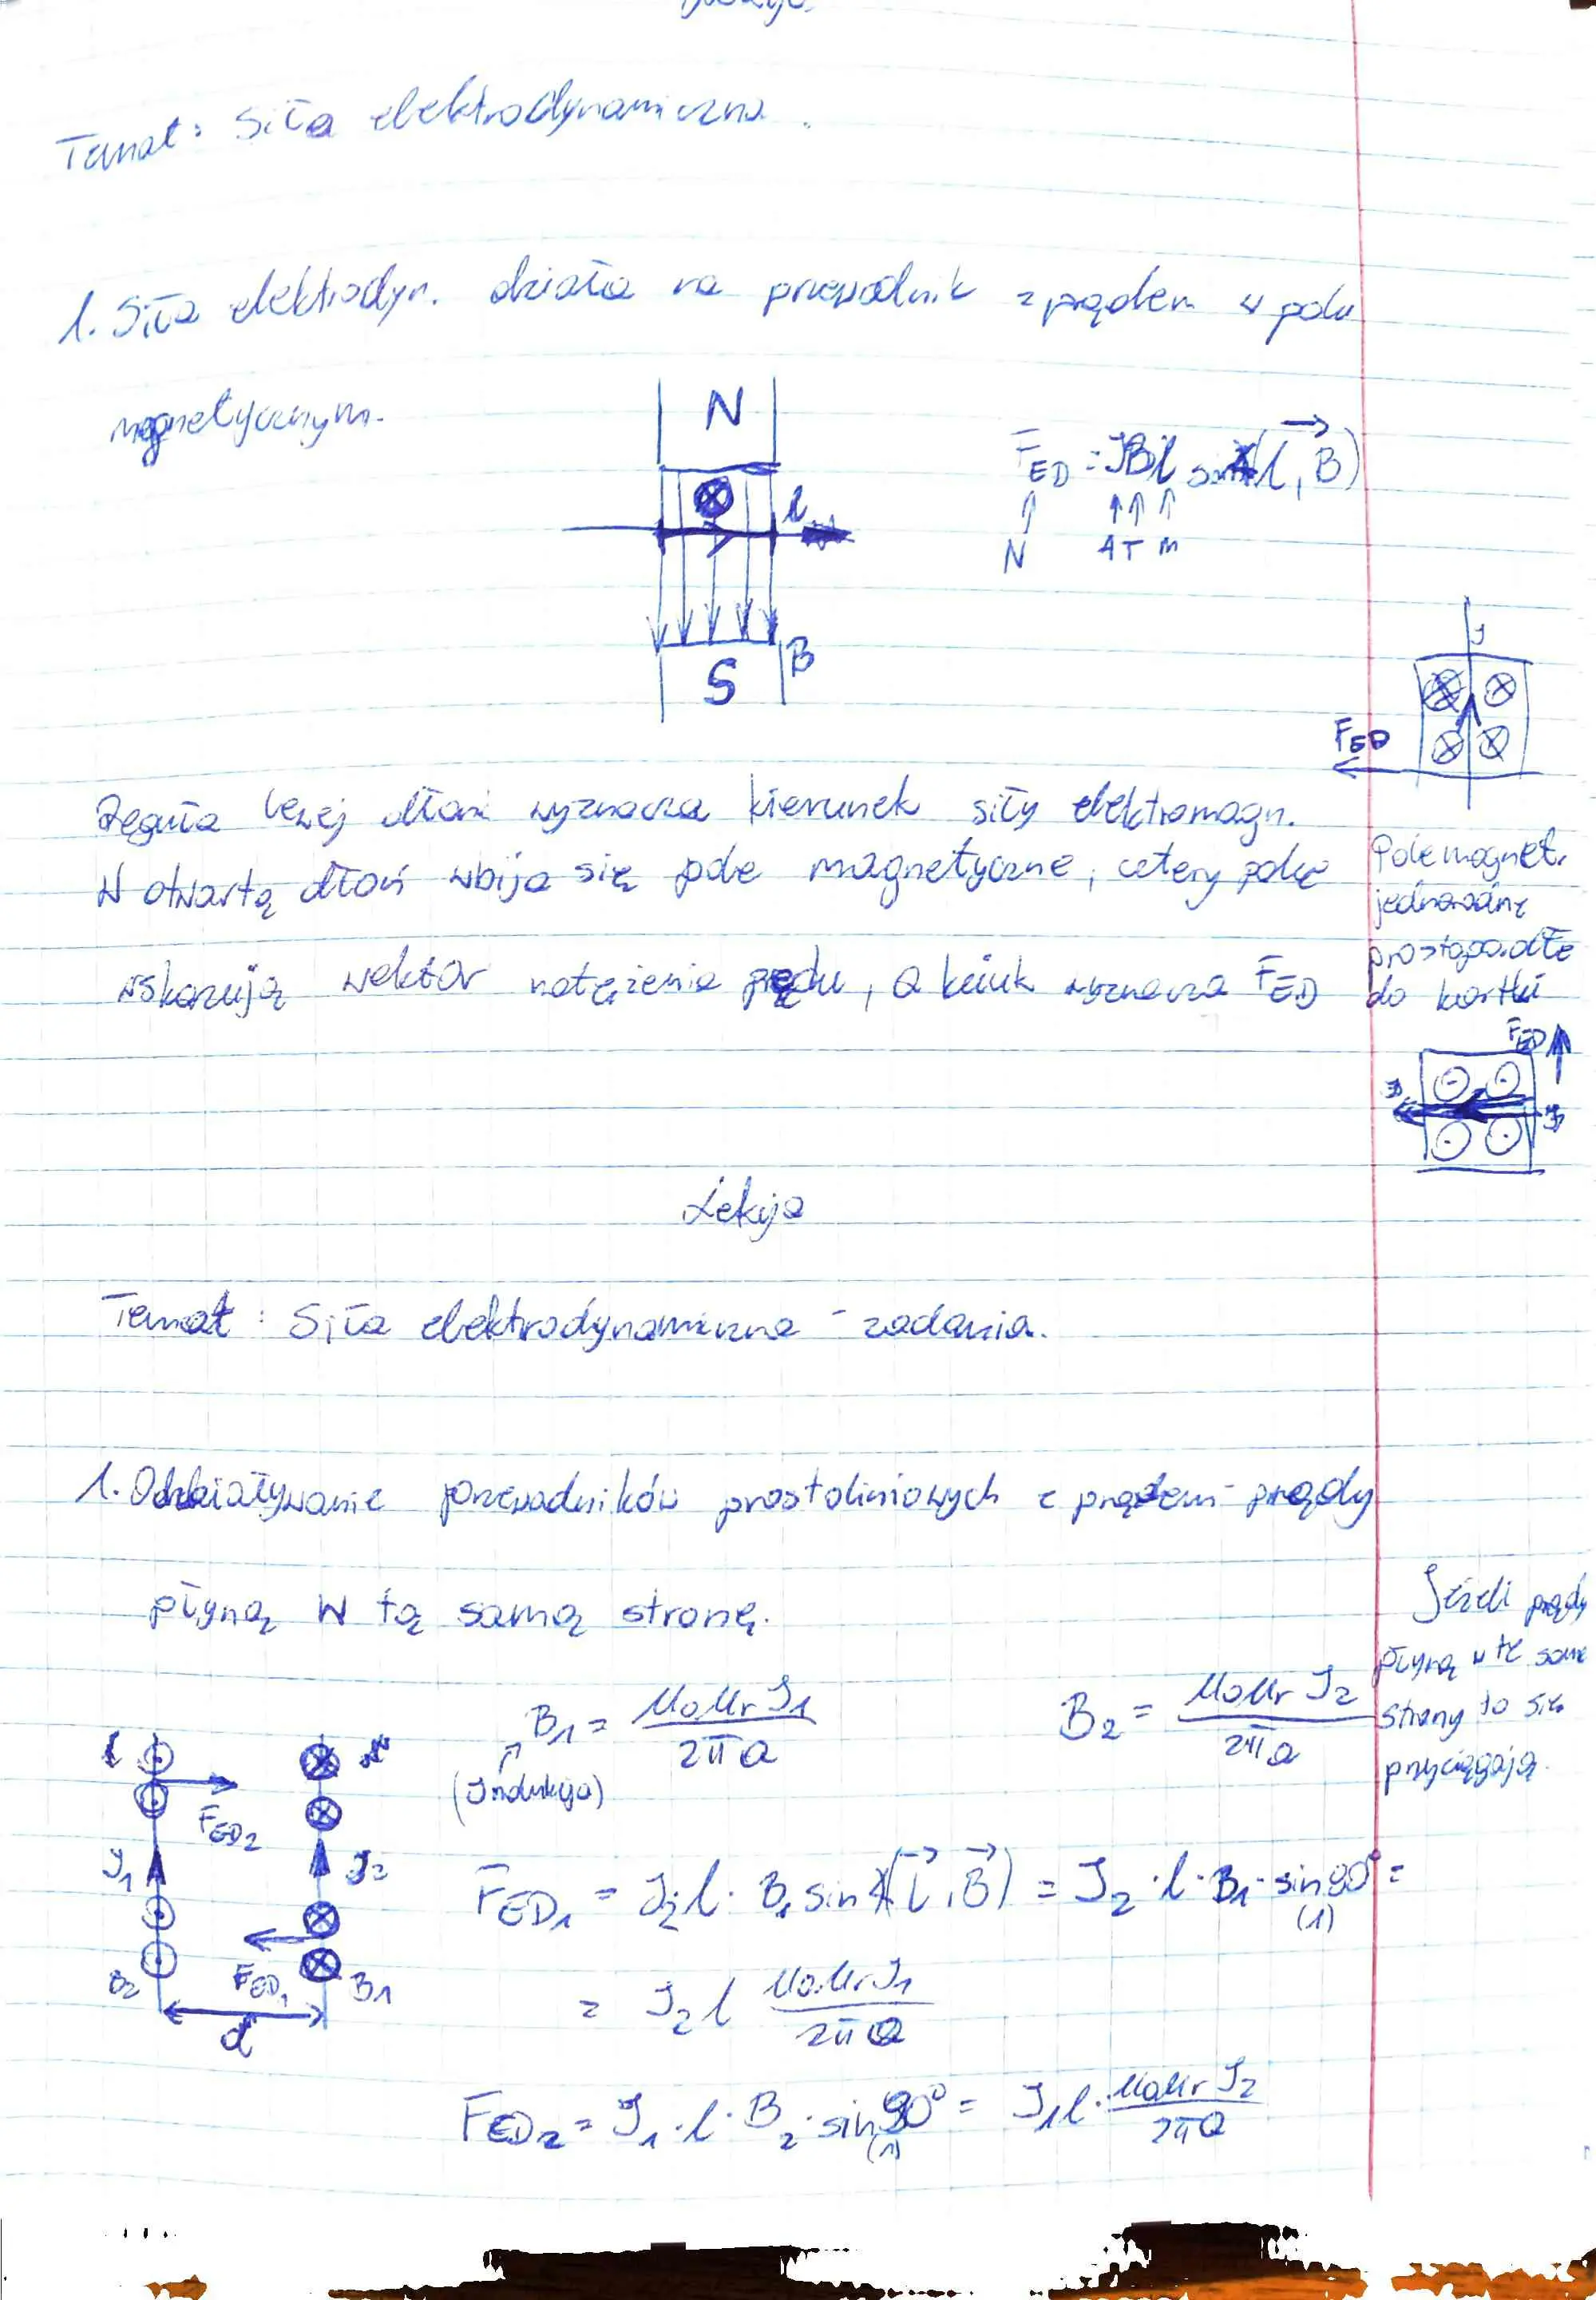 Temat: Siła elektrodynamiczna.
1. Siła elektrodyn. działa na przewodnik z prądem w polu
magnetycznym.
N
l
B
S
F_ED = JBl sin∢(l, B)
N A T m
J
F_ED
Reguła lewej dłoni wyznacza kierunek siły elektromagn.
W otwartą dłoń wbija się pole magnetyczne, cztery palce
wskazują wektor natężenia prądu, a kciuk wyznacza F_ED
Pole magnet.
jednorodne
prostopadłe
do kartki
F_ED
Lekcja
Temat: Siła elektrodynamiczna - zadania.
1. Oddziaływanie przewodników prostoliniowych z prądem - prądy
płyną w tą samą stronę.
Jeżeli prądy
płyną w te same
strony to się
przyciągają.
B₁ = μ₀μr J₁ / 2πa
(Indukcja)
B₂ = μ₀μr J₂ / 2πa
F_ED2
J₁ J₂
F_ED1
B₂ B₁
d
F_ED1 = J₂ l · B₁ sin∢(l, B) = J₂ · l · B₁ · sin90° =
(1)
= J₂ l μ₀μr J₁ / 2πa
F_ED2 = J₁ · l · B₂ · sin90° = J₁ l · μ₀μr J₂ / 2πa
(1)